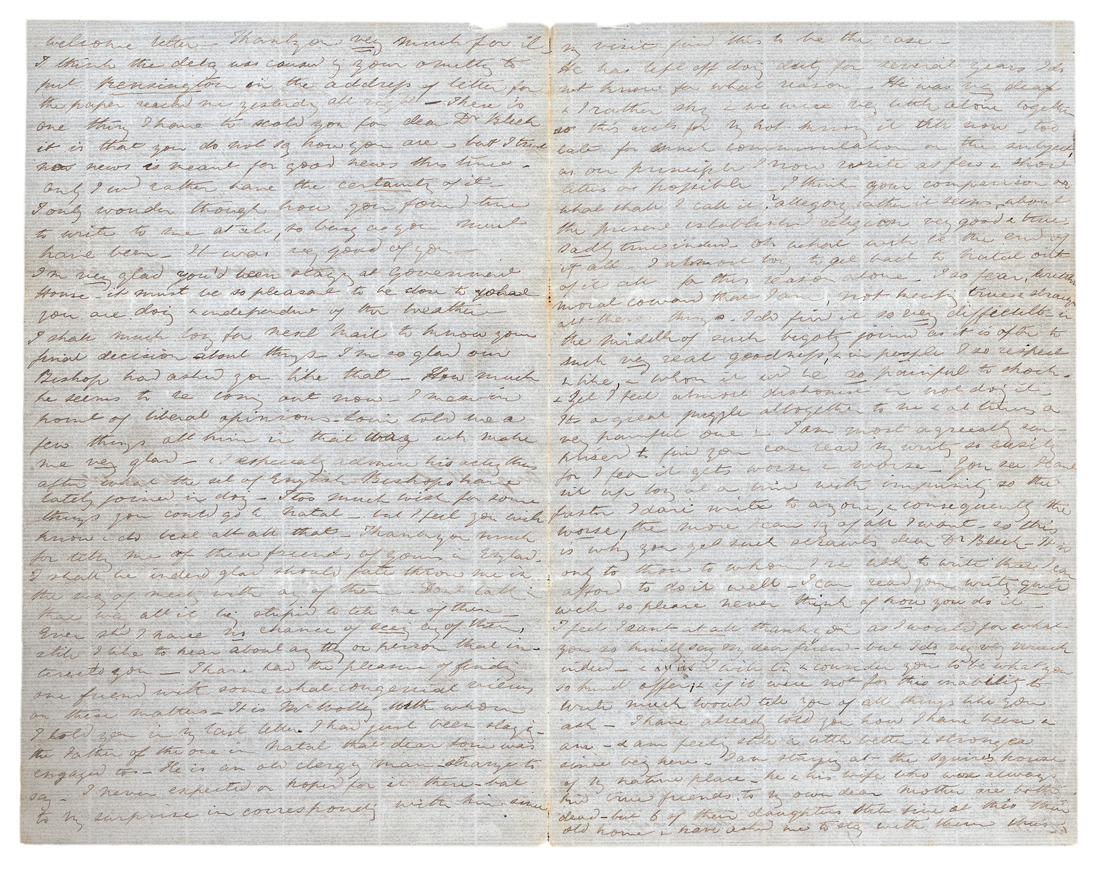 welcome letter – Thank you very much for it
I think the delay was caused by your omitting to
put Kensington in the address of letter for
the paper reached me yesterday all right – There is
one thing I have to scold you for dear Dr Bleek
it is that you do not say how you are – but I trust
no news is meant for good news this time –
only I wd rather have the certainty of it –
I only wonder though how you found time
to write to me at all, so busy as you must
have been – It was very good of you –
I'm very glad you'd been staying at Government
House – it must be so pleasant to be close to
you are doing & independent of the weather –
I shall much long for next Mail to know your
final decision about things – I'm so glad our
Bishop had asked you like that – How much
he seems to be coming out now – I mean in
point of liberal opinions – told me a
few things abt him in that way wh make
me very glad – & I especially admire his acting thus
after what the set of English Bishops have
lately joined in doing – I too much wish for some
things you could go to Natal – but I feel you will
know & do best abt all that – Thank you much
for telling me of these friends of yours in England
I shall be indeed glad should fate throw me in
the way of meeting with any of them – Dont talk in
that way abt it being stupid to tell me of them
Even shd I have no chance of seeing any of them,
still I like to hear about any thing or person that in-
terests you – I have had the pleasure of finding
one friend with somewhat congenial views
on these matters – It is Mr with whom
I told you in my last letter I had just been staying –
the Father of the one in Natal that dear was
engaged to – He is an old clergy man – strange to
say – I never expected or hoped for it there – but
to my surprise in corresponding with him since
my visit find this to be the case –
He has left off doing duty for several years I do
not know for what reason – He was very deaf
& I rather shy & we were very little alone together
so this accts for my not knowing it till now – too
late for much communication on the subject,
as on principle I now write as few & short
letters as possible – I think your comparison or
what shall I call it, allegory rather it seems, about
the present established religion very good & true
Sadly true indeed – Oh what will be the end of
it all – I almost long to get back to Natal out
of it all for this reason alone – I so fear,
moral coward that I am, not keeping true & straight
all these things – I do find it so very difficult in
the middle of such bigotry joined as it is often to
such very real goodness, & in people I so respect
& like, & whom it wd be so painful to shock –
& yet I feel almost dishonest in not doing it
Its a great puzzle altogether to me & at times a
very painful one – I am most agreeably sur-
prised to find you can read my writing so easily
for I fear it gets worse & worse – You see I cant
sit up long at a time with impunity so the
faster I dare write to anyone, & consequently the
worse, the more I can say of all I want – so this
is why you get such scrawls dear Dr Bleek – Its
only to those to whom I've little to write that I can
afford to do it well – I can read your writing quite
well so please never think of how you do it –
I feel I cant at all thank you as I would for what
you so kindly say my dear friend – but I do very very much
indeed – & consider you to be what you
so kindly offer, & if it were not for this inability to
write much would tell you of all things like you
ask – I have already told you how I have been &
am – & am feeling still a little better & stronger
since being here – I am staying at the Squires house
of my native place – he & his wife who were always
kind true friends to my own dear mother are both
dead – but 6 of their daughters still live at this their
old home & have asked me to stay with them thus